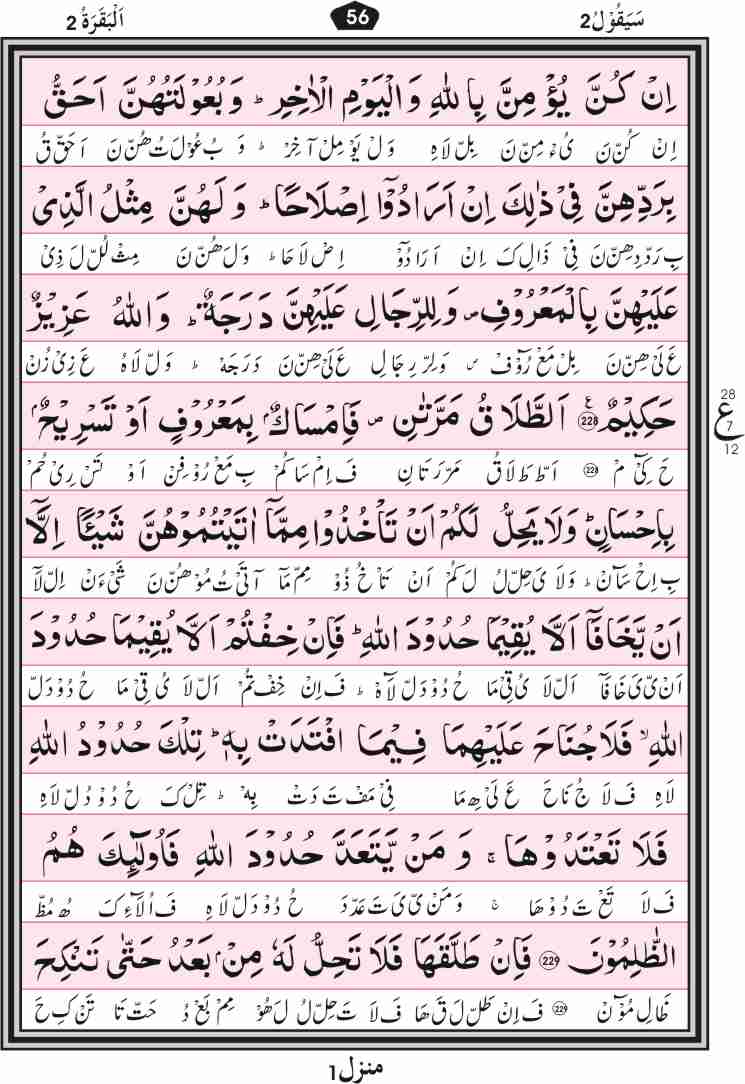 سَيَقُوۡلُ 2
56
اَلۡبَقَرَةُ 2
اِنۡ كُنَّ يُؤۡمِنَّ بِاللّٰهِ وَالۡيَوۡمِ الۡاٰخِرِ ؕ وَبُعُوۡلَتُهُنَّ اَحَقُّ
اِنۡ كُنۡ نَ یُءۡ مِنۡ نَ بِلۡ لَاهِ وَلۡ یَوۡ مِلۡ آخِرۡ ؕ وَ بُ عُوۡلَ تُ هُنۡ نَ اَ حَقۡ قُ
بِرَدِّهِنَّ فِىۡ ذٰ لِكَ اِنۡ اَرَادُوۡٓا اِصۡلَاحًا ؕ وَلَهُنَّ مِثۡلُ الَّذِىۡ
بِ رَدۡ دِهِنۡ نَ فِىۡ ذَالِ كَ اِنۡ اَ رَا دُوۡٓ اِصۡ لَا حَا ؕ وَلَ هُنۡ نَ مِثۡ لُلۡ لَ ذِىۡ
عَلَيۡهِنَّ بِالۡمَعۡرُوۡفِ ۪ وَلِلرِّجَالِ عَلَيۡهِنَّ دَرَجَةٌ ؕ وَاللّٰهُ عَزِيۡزٌ
عَ لَىۡ هِنۡ نَ بِلۡ مَعۡ رُوۡفۡ ۪ وَلِرۡ رِجَالِ عَ لَىۡ هِنۡ نَ دَرَجَهۡ ؕ وَلۡ لَاهُ عَ زِىۡ زُنۡ
حَكِيۡمٌ ﴿228﴾ اَلطَّلَاقُ مَرَّتٰنِ ۪ فَاِمۡسَاكٌ ۢ بِمَعۡرُوۡفٍ اَوۡ تَسۡرِيۡحٌ ۢ
حَ كِىۡٓ مۡ 228 اَطۡ طَ لَاقُ مَرۡ رَتَانِ فَ اِمۡ سَا كُمۡ بِ مَعۡ رُوۡ فِنۡ اَوۡ تَسۡ رِىۡ حُمۡ
بِاِحۡسَانٍ ؕ وَلَا يَحِلُّ لَـكُمۡ اَنۡ تَاۡخُذُوۡا مِمَّآ اٰتَيۡتُمُوۡهُنَّ شَيۡئًا اِلَّاۤ
بِ اِحۡ سَآنۡ ؕ وَلَا یَ حِلۡ لُ لَ كُمۡ اَنۡ تَاۡخُ ذُوۡ مِمۡ مَآ آ تَىۡ تُ مُوۡ هُنۡ نَ شَىۡ ءَنۡ اِلۡ لَآ
اَنۡ يَّخَافَآ اَ لَّا يُقِيۡمَا حُدُوۡدَ اللّٰهِ ؕ فَاِنۡ خِفۡتُمۡ اَ لَّا يُقِيۡمَا حُدُوۡدَ
اَنۡ ىۡ یَ خَا فَآ اَلۡ لَا یُ قِىۡ مَا حُ دُوۡ دَلۡ لَآهۡ ؕ فَ اِنۡ خِفۡ تُمۡ اَلۡ لَا یُ قِىۡ مَا حُ دُوۡ دَلۡ
اللّٰهِ ۙ فَلَا جُنَاحَ عَلَيۡهِمَا فِيۡمَا افۡتَدَتۡ بِهٖ ؕ تِلۡكَ حُدُوۡدُ اللّٰهِ
لَاهِ فَ لَا جُ نَاحَ عَ لَىۡ هِ مَا فِىۡ مَفۡ تَ دَتۡ بِهٖ ؕ تِلۡ كَ حُ دُوۡ دُلۡ لَاهِ
فَلَا تَعۡتَدُوۡهَا ۚ وَمَنۡ يَّتَعَدَّ حُدُوۡدَ اللّٰهِ فَاُولٰٓٮِٕكَ هُمُ
فَ لَا تَعۡ تَ دُوۡ هَا ۚ وَمَنۡ ىۡ یَ تَ عَدۡ دَ حُ دُوۡ دَلۡ لَاهِ فَ اُلَآءِ كَ هُ مُظۡ
الظّٰلِمُوۡنَ ﴿229﴾ فَاِنۡ طَلَّقَهَا فَلَا تَحِلُّ لَهٗ مِنۡۢ بَعۡدُ حَتّٰى تَنۡكِحَ
ظَالِ مُوۡٓنۡ 229 فَ اِنۡ طَلۡ لَ قَ هَا فَ لَا تَ حِلۡ لُ لَ هُوۡ مِمۡ بَعۡ دُ حَتۡ تَا تَنۡ كِ حَ
28
ع
7
12
منزل 1